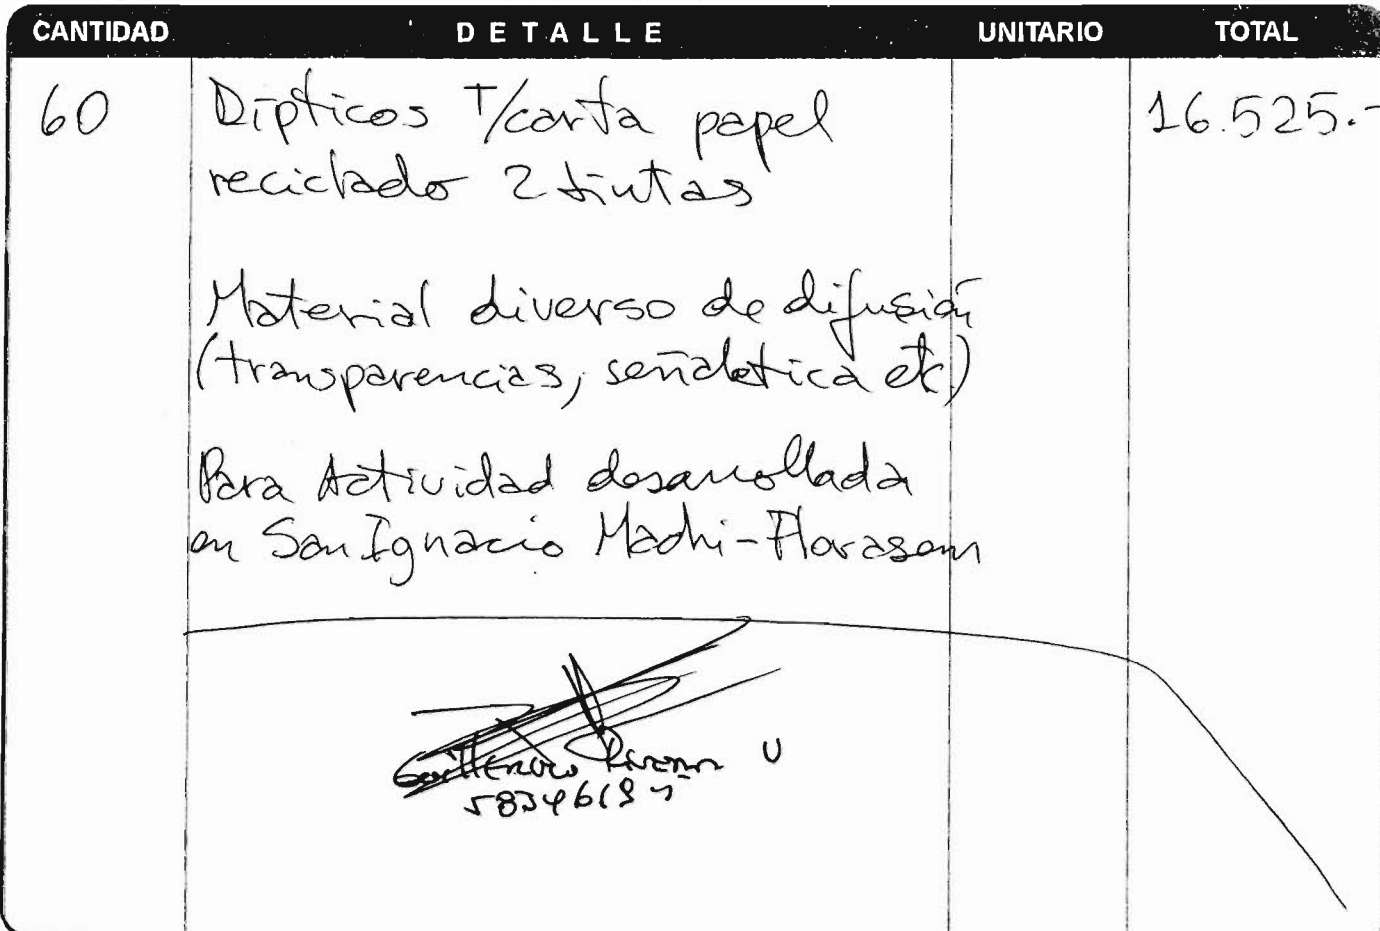 CANTIDAD DETALLE UNITARIO TOTAL
60 Dípticos T/carta papel 16.525.-
reciclado 2 tintas
Material diverso de difusión
(transparencias, señalética etc)
Para Actividad desarrollada
en San Ignacio Madhi-Florasem
Guillermo U